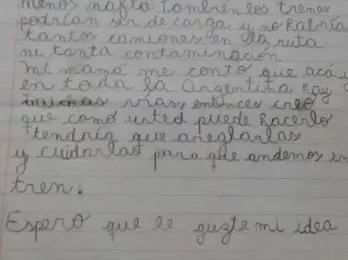 menos nafta. también los trenes
podrían ser de carga y no habría
tantos camiones en la ruta
ni tanta contaminación
mi mamá me contó que acá y
en toda la Argentina hay
muchas vías, entonces creo
que como usted puede hacerlo
tendría que areglarlas
y cuidarlas para que andemos en
tren.
Espero que le guzte mi idea